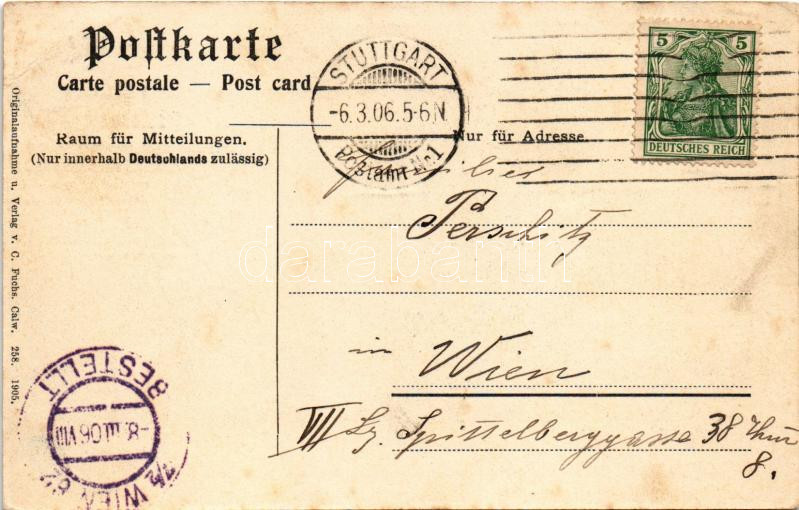 Postkarte
Carte postale — Post card
STUTTGART
-6.3.06.5-6N.
Postamt №1
5 5
DEUTSCHES REICH
Raum für Mitteilungen.
(Nur innerhalb Deutschlands zulässig)
Nur für Adresse.
Perschitz
in Wien
VII Bz. Spittelberggasse 38 Thür
8.
Originalaufnahme u. Verlag v. C. Fuchs. Calw. 258. 1905.
BESTELLT
-8.III.06 VIII
WIEN 62
darabanth